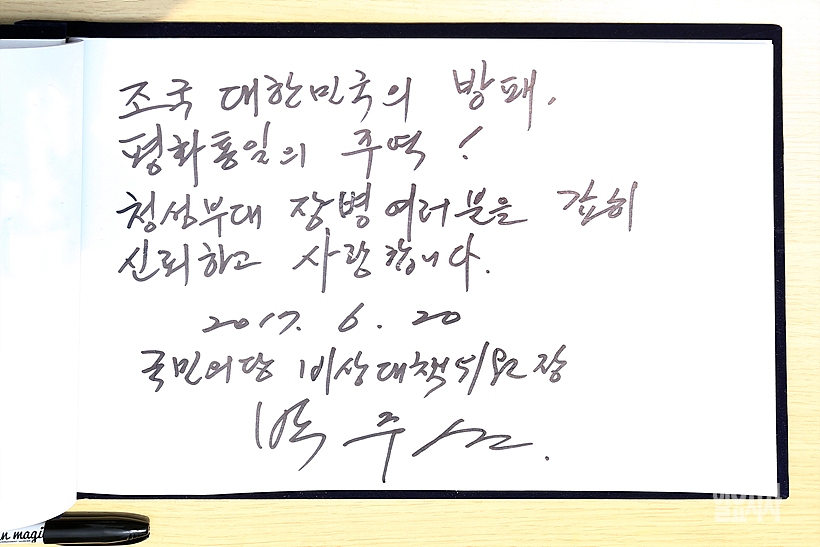 조국 대한민국의 방패,
평화통일의 주역!
청성부대 장병 여러분을 깊히
신뢰하고 사랑합니다.
2017. 6. 20
국민의당 비상대책위원장
박주선.
n magi
일요시사